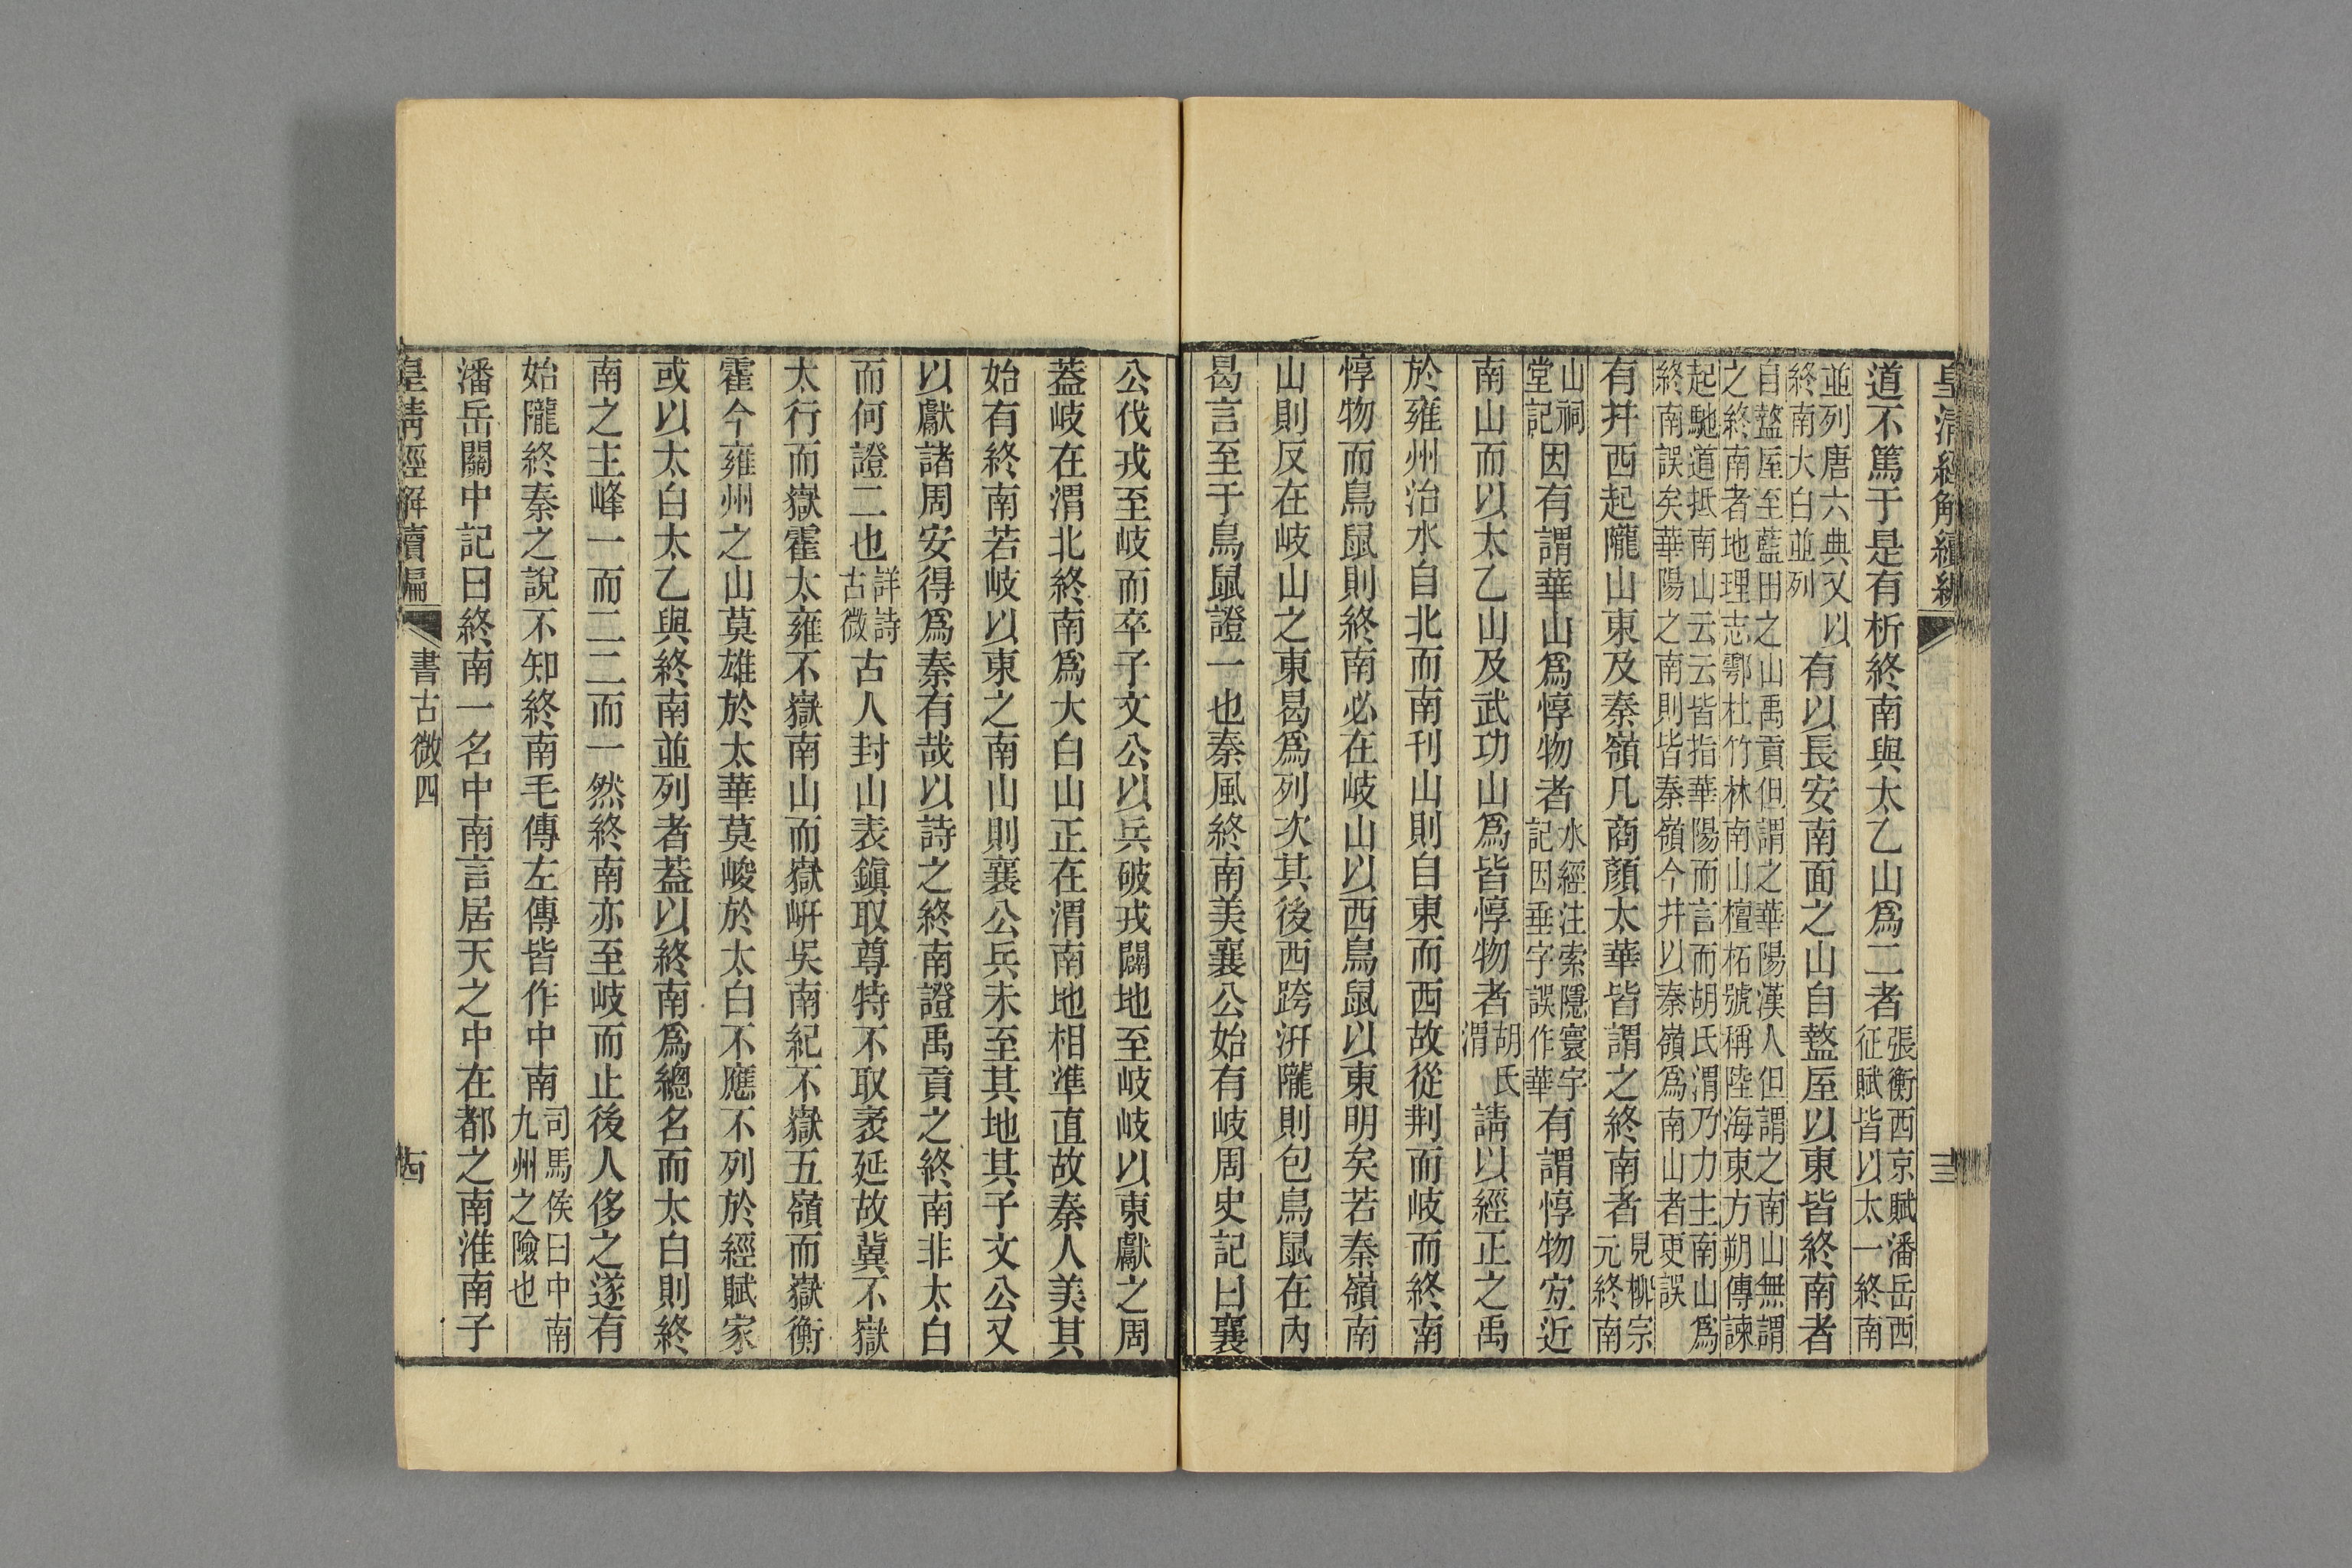 皇清經解續編
三
道不篤于是有析終南與太乙山爲二者張衡西京賦潘岳西征賦皆以太一終南
並列唐六典又以終南大白並列有以長安南面之山自盩厔以東皆終南者
自盩厔至藍田之山禹貢但謂之華陽漢人但謂之南山無謂之終南者地理志鄠杜竹林南山檀柘號稱陸海東方朔傳諫
起馳道抵南山云云皆指華陽而言而胡氏渭乃力主南山爲終南誤矣華陽之南則皆秦嶺今幷以秦嶺爲南山者更誤
有幷西起隴山東及秦嶺凡商顏太華皆謂之終南者見柳宗元終南
山祠堂記因有謂華山爲惇物者水經注索隱寰宇記因垂字誤作華有謂惇物宐近
南山而以太乙山及武功山爲皆惇物者胡氏渭請以經正之禹
於雍州治水自北而南刊山則自東而西故從荆而岐而終南
惇物而鳥鼠則終南必在岐山以西鳥鼠以東明矣若秦嶺南
山則反在岐山之東曷爲列次其後西跨汧隴則包鳥鼠在內
曷言至于鳥鼠證一也秦風終南美襄公始有岐周史記曰襄
公伐戎至岐而卒子文公以兵破戎闢地至岐岐以東獻之周
葢岐在渭北終南爲大白山正在渭南地相準直故秦人美其
始有終南若岐以東之南山則襄公兵未至其地其子文公又
以獻諸周安得爲秦有哉以詩之終南證禹貢之終南非太白
而何證二也詳詩古微古人封山表鎭取尊特不取袤延故冀不嶽
太行而嶽霍太雍不嶽南山而嶽岍吳南紀不嶽五嶺而嶽衡
霍今雍州之山莫雄於太華莫峻於太白不應不列於經賦家
或以太白太乙與終南並列者葢以終南爲總名而太白則終
南之主峰一而二二而一然終南亦至岐而止後人侈之遂有
始隴終秦之說不知終南毛傳左傳皆作中南司馬侯曰中南九州之險也
潘岳關中記曰終南一名中南言居天之中在都之南淮南子
皇清經解續編
書古微四
古